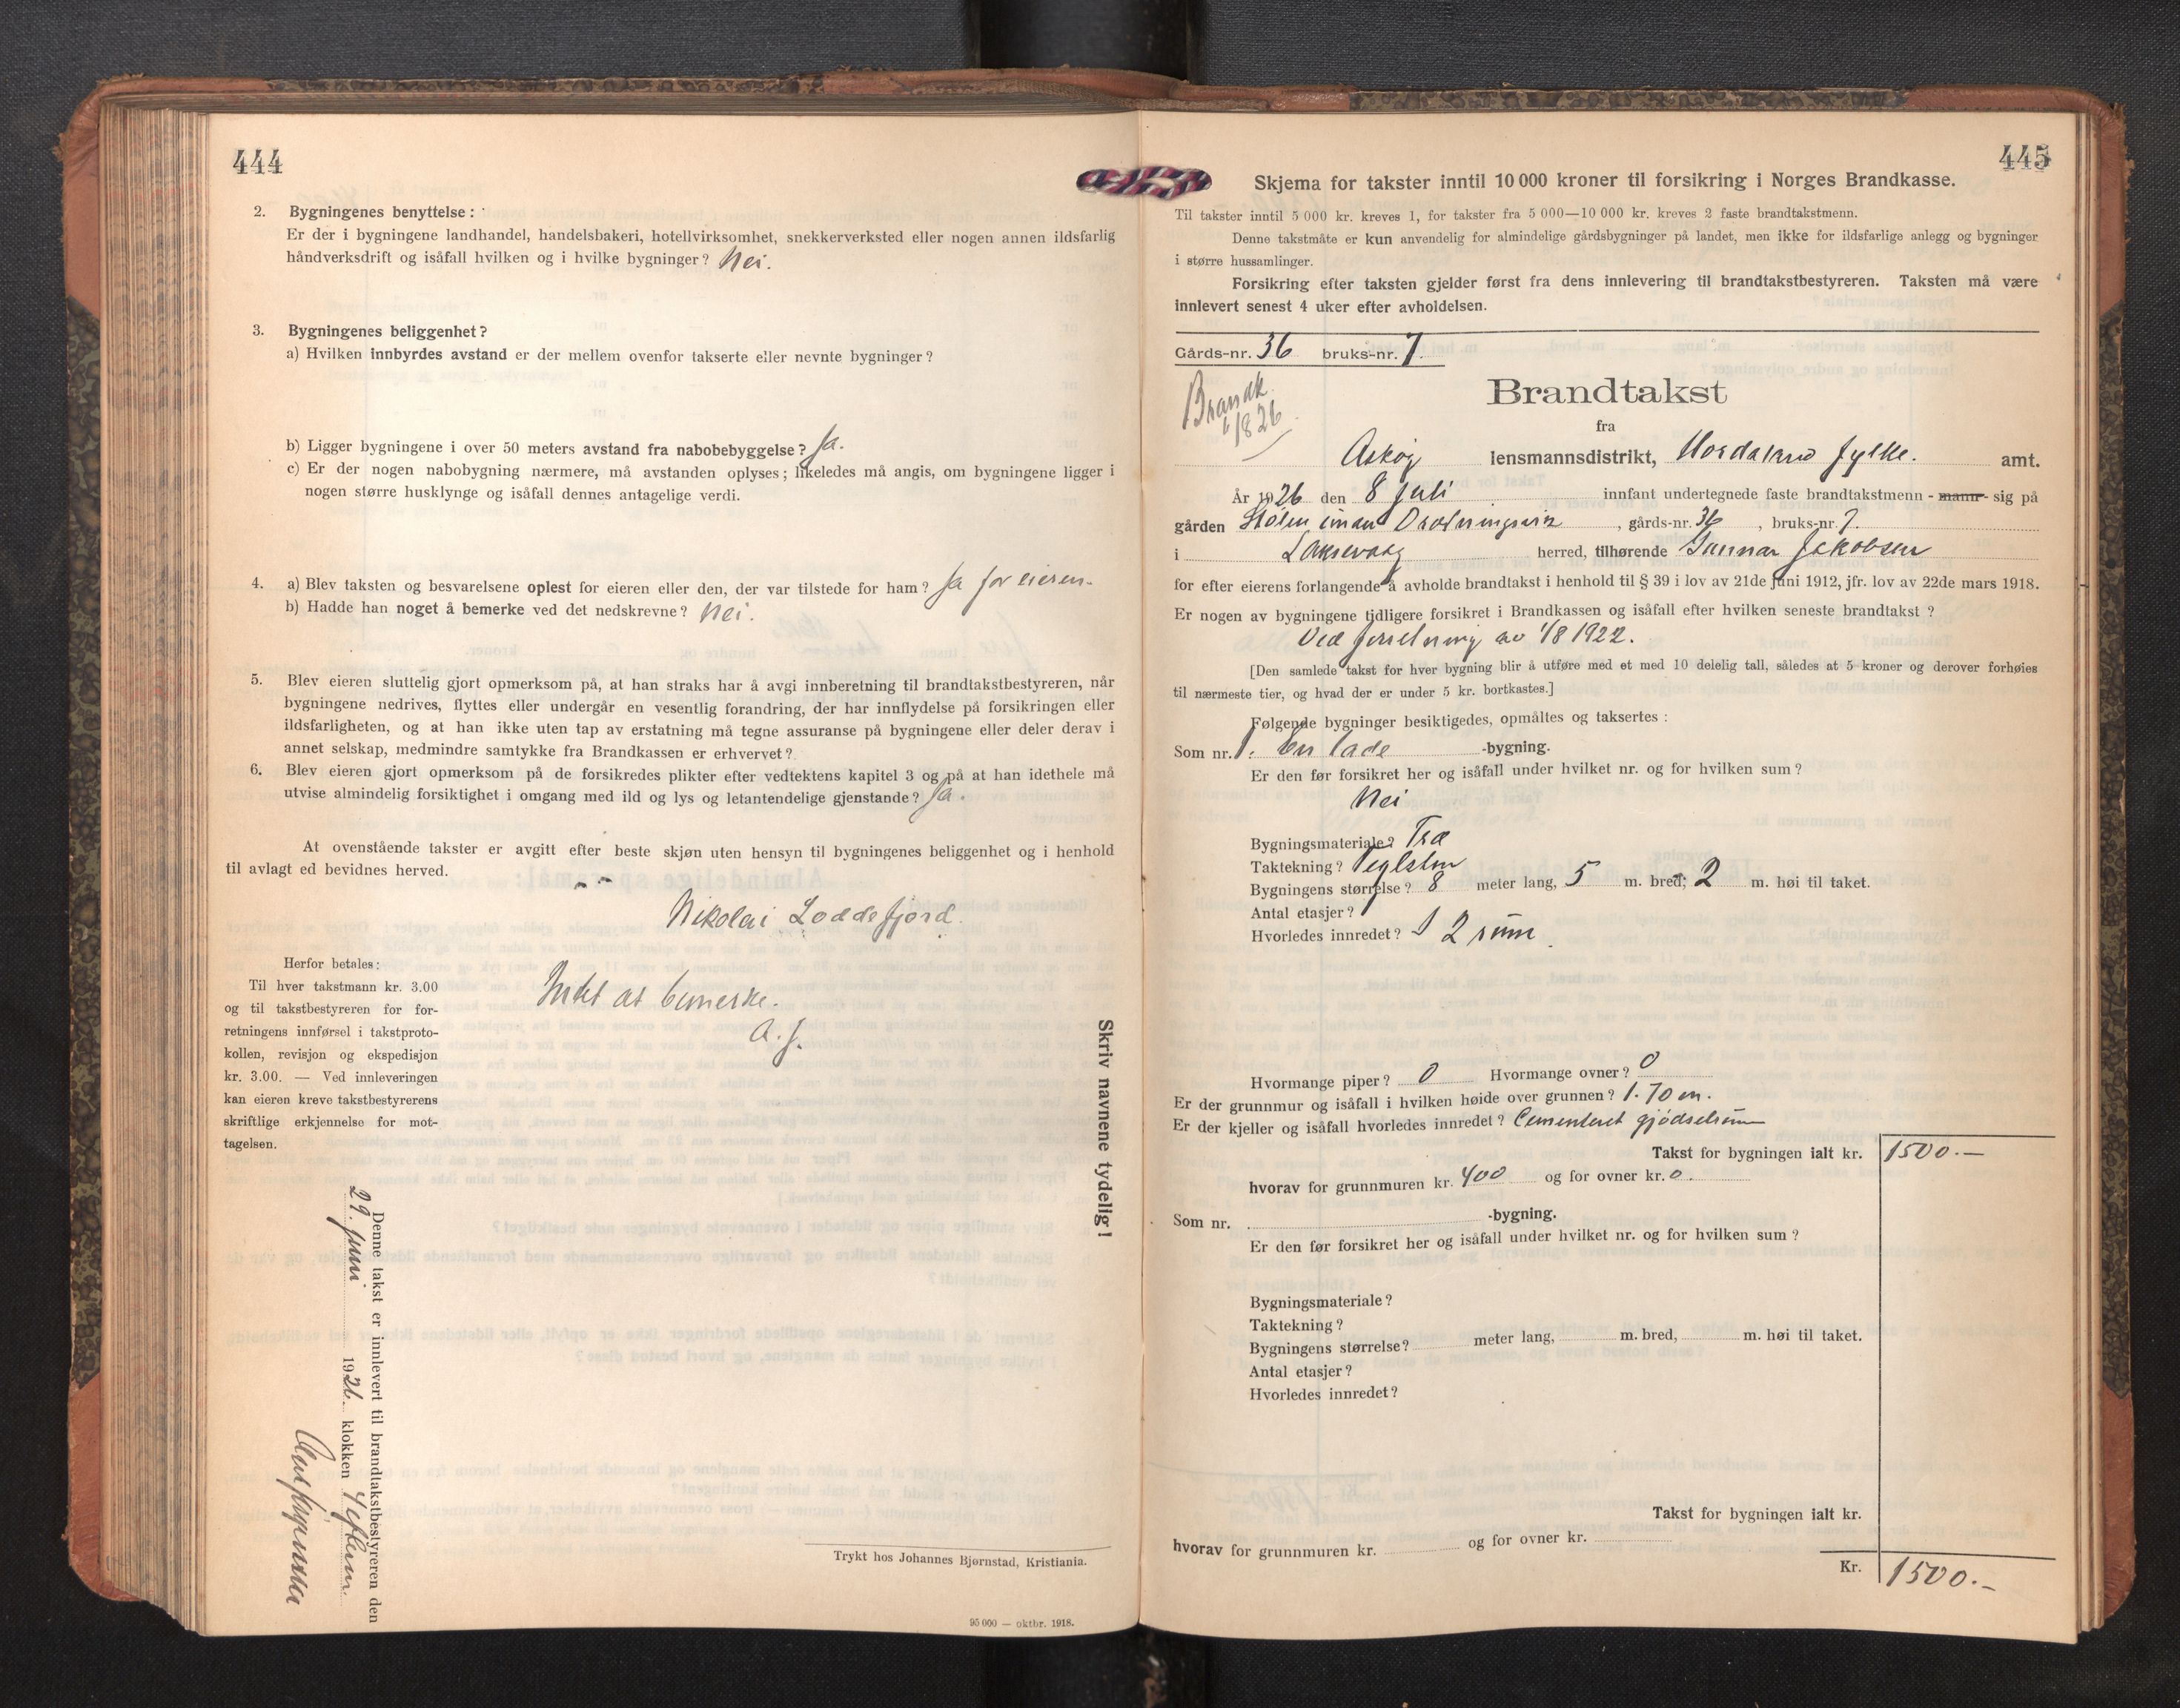 444
2. Bygningenes benyttelse:
Er der i bygningene landhandel, handelsbakeri, hotellvirksomhet, snekkerverksted eller nogen annen ildsfarlig
håndverksdrift og isåfall hvilken og i hvilke bygninger? Nei.
3. Bygningenes beliggenhet?
a) Hvilken innbyrdes avstand er der mellem ovenfor takserte eller nevnte bygninger?
b) Ligger bygningene i over 50 meters avstand fra nabobebyggelse? Ja.
c) Er der nogen nabobygning nærmere, må avstanden oplyses; likeledes må angis, om bygningene ligger i
nogen større husklynge og isåfall dennes antagelige verdi.
4. a) Blev taksten og besvarelsene oplest for eieren eller den, der var tilstede for ham? Ja for eieren.
b) Hadde han noget å bemerke ved det nedskrevne? Nei.
5. Blev eieren sluttelig gjort opmerksom på, at han straks har å avgi innberetning til brandtakstbestyreren, når
bygningene nedrives, flyttes eller undergår en vesentlig forandring, der har innflydelse på forsikringen eller
ildsfarligheten, og at han ikke uten tap av erstatning må tegne assuranse på bygningene eller deler derav i
annet selskap, medmindre samtykke fra Brandkassen er erhvervet?
6. Blev eieren gjort opmerksom på de forsikredes plikter efter vedtektens kapitel 3 og på at han idethele må
utvise almindelig forsiktighet i omgang med ild og lys og letantendelige gjenstande? Ja.
At ovenstående takster er avgitt efter beste skjøn uten hensyn til bygningenes beliggenhet og i henhold
til avlagt ed bevidnes herved.
Nikolai Loddefjord
Herfor betales:
Til hver takstmann kr. 3.00
og til takstbestyreren for for-
retningens innførsel i takstproto-
kollen, revisjon og ekspedisjon
kr. 3.00. — Ved innleveringen
kan eieren kreve takstbestyrerens
skriftlige erkjennelse for mot-
tagelsen.
Intet at bemerke.
A. J.
Skriv navnene tydelig!
Denne takst er innlevert til brandtakstbestyreren den
29. juni 1926 klokken 4 eftm.
Trykt hos Johannes Bjørnstad, Kristiania.
95 000 — oktbr. 1918.
445
Skjema for takster inntil 10 000 kroner til forsikring i Norges Brandkasse.
Til takster inntil 5 000 kr. kreves 1, for takster fra 5 000—10 000 kr. kreves 2 faste brandtakstmenn.
Denne takstmåte er kun anvendelig for almindelige gårdsbygninger på landet, men ikke for ildsfarlige anlegg og bygninger
i større hussamlinger.
Forsikring efter taksten gjelder først fra dens innlevering til brandtakstbestyreren. Taksten må være
innlevert senest 4 uker efter avholdelsen.
Gårds-nr. 36 bruks-nr. 7.
Brandk.
6/8 26
Brandtakst
fra
Askøy lensmannsdistrikt, Hordaland fylke. amt.
År 1926 den 8 juli innfant undertegnede faste brandtakstmenn - mann - sig på
gården Stølen innan Drotningsvik, gårds-nr. 36, bruks-nr. 7.
i Laksevaag herred, tilhørende Gunnar Jakobsen
for efter eierens forlangende å avholde brandtakst i henhold til § 39 i lov av 21de juni 1912, jfr. lov av 22de mars 1918.
Er nogen av bygningene tidligere forsikret i Brandkassen og isåfall efter hvilken seneste brandtakst?
Ved forretning av 1/8 1922.
[Den samlede takst for hver bygning blir å utføre med et med 10 delelig tall, således at 5 kroner og derover forhøies
til nærmeste tier, og hvad der er under 5 kr. bortkastes.]
Følgende bygninger besiktigedes, opmåltes og taksertes:
Som nr. 1. En lade -bygning.
Er den før forsikret her og isåfall under hvilket nr. og for hvilken sum?
Nei
Bygningsmateriale? Træ
Taktekning? Teglsten
Bygningens størrelse? 8 meter lang, 5 m. bred, 2 m. høi til taket.
Antal etasjer? 1
Hvorledes innredet? I 2 rum
Hvormange piper? 0 Hvormange ovner? 0
Er der grunnmur og isåfall i hvilken høide over grunnen? 1.70 m.
Er der kjeller og isåfall hvorledes innredet? Cementeret gjødselrum
Takst for bygningen ialt kr. 1500.—
hvorav for grunnmuren kr. 400 og for ovner kr. 0.
Som nr. -bygning.
Er den før forsikret her og isåfall under hvilket nr. og for hvilken sum?
Bygningsmateriale?
Taktekning?
Bygningens størrelse? meter lang, m. bred, m. høi til taket.
Antal etasjer?
Hvorledes innredet?
Takst for bygningen ialt kr.
hvorav for grunnmuren kr. og for ovner kr.
Kr. 1500.—